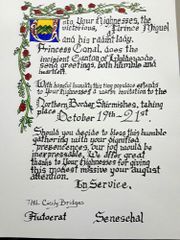 Unto Your Highnesses, the
victorious, Prince Miguel
and his radiant lady,
Princess Conal, does the
incipient Canton of
send greetings, both humble and
heartfelt.
With honest humility this tiny populace extends
to Your Highnesses a warm invitation to the
Northern Border Skirmishes, taking
place October 19th - 21st
Should you decide to bless this humble
gathering with your dignified
presences, our joy would be
inexpressible. We offer great
thanks to Your Highnesses for giving
this modest missive your august
attention.
In Service,
Bridges
Autocrat Seneschal